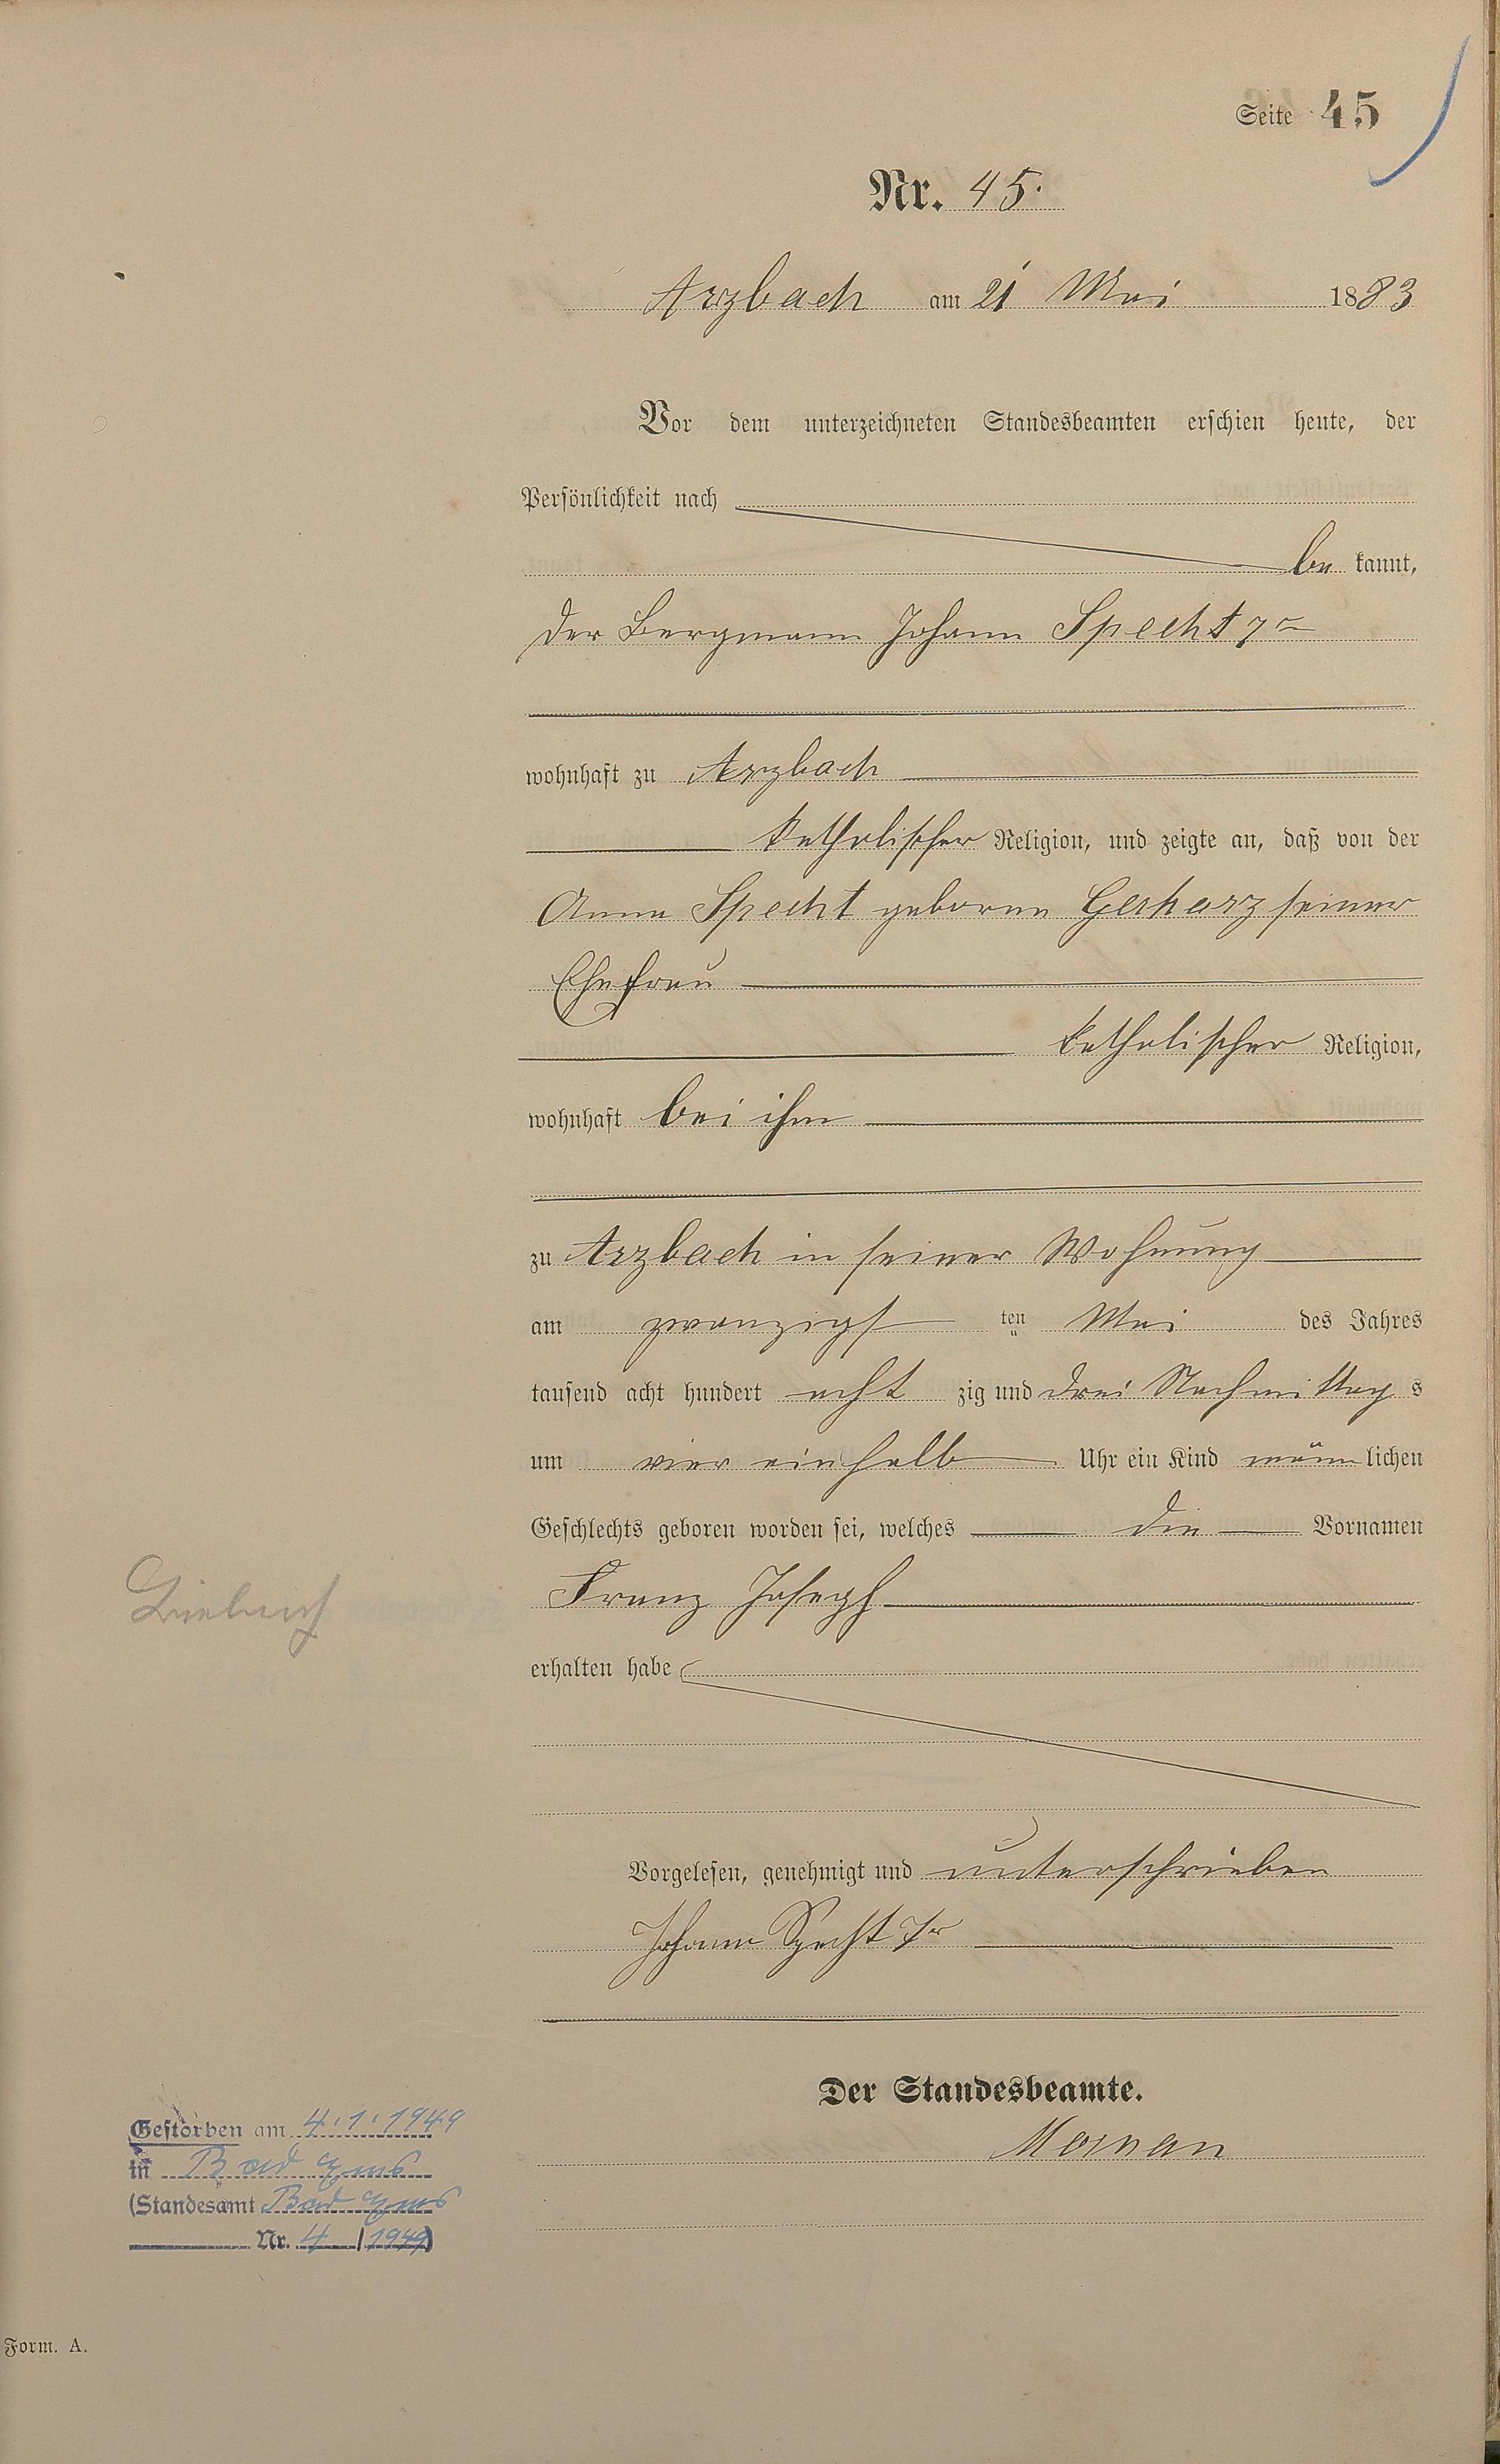 Seite 45
Nr. 45.
Arzbach am 21 Mai 1883
Vor dem unterzeichneten Standesbeamten erschien heute, der
Persönlichkeit nach
be kannt,
der Bergmann Johann Specht 7r
wohnhaft zu Arzbach
katholischer Religion, und zeigte an, daß von der
Anna Specht geborne Gerharz seiner
Ehefrau
katholischer Religion,
wohnhaft bei ihm
zu Arzbach in seiner Wohnung
am zwanzigst ten Mai des Jahres
tausend acht hundert acht zig und drei Nachmittag s
um vier einhalb Uhr ein Kind männ lichen
Geschlechts geboren worden sei, welches die Vornamen
Franz Joseph
erhalten habe
Vorgelesen, genehmigt und unterschrieben
Johann Specht 7r
Der Standesbeamte.
Gestorben am 4.1.1949
in Bad Ems
(Standesamt Bad Ems
Nr. 4 / 1949)
Form. A.